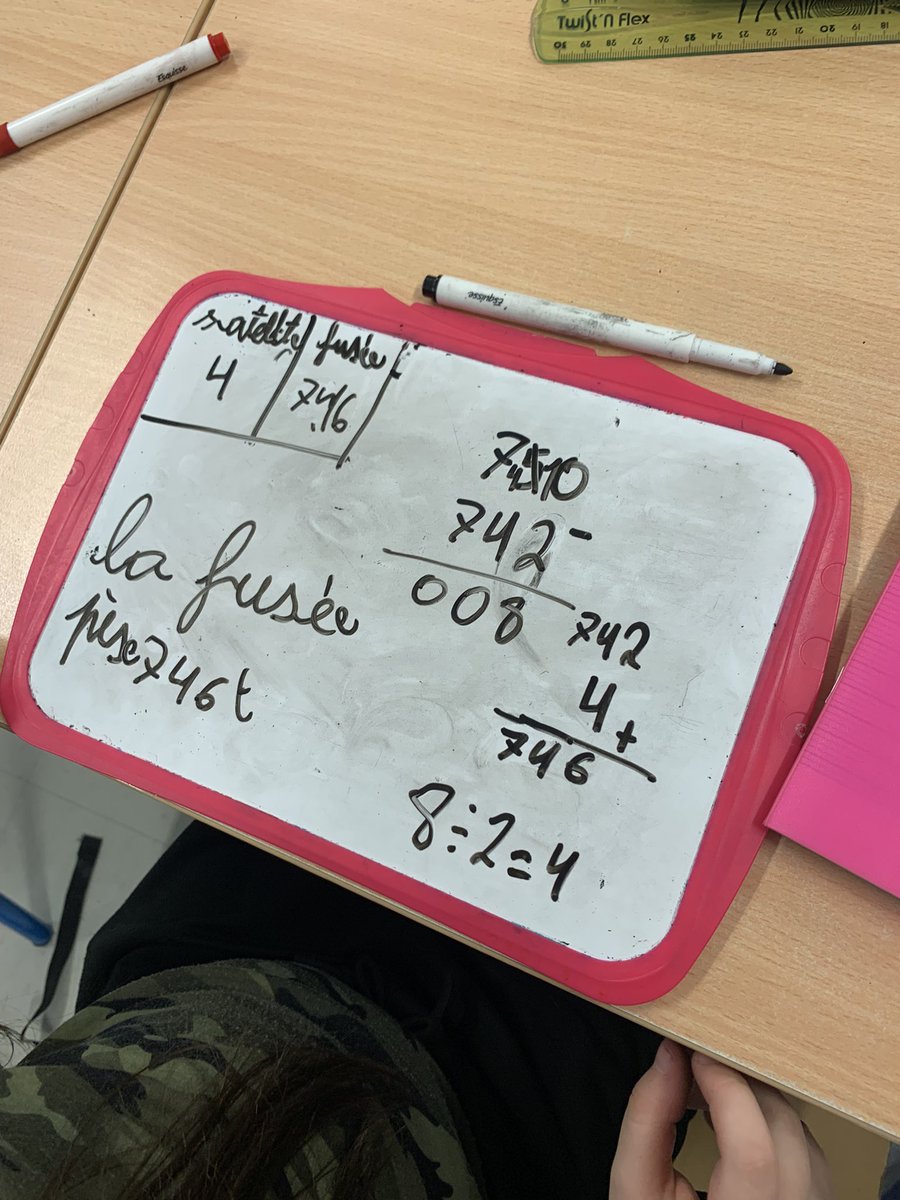 Twist'n Flex
30 29 28 27 26 25 24 23 22 21 20 19 18
Esquisse
Esquisse
satélite fusée
4 746
750
742 -
008
742
4 +
746
8 ÷ 2 = 4
la fusée
pèse 746 t